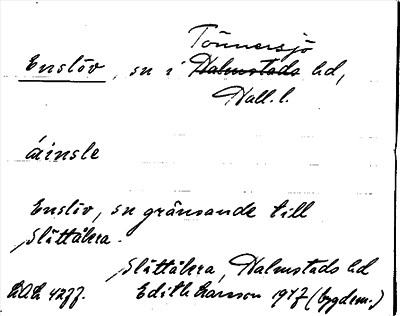 Tönnersjö
Enslöv, sn i Halmstads hd,
Hall. l.
áinsle
Enslöv, sn gränsande till
Slättåkra.
Slättåkra, Halmstads hd
Edith Larsson 1917 (bygdem.)